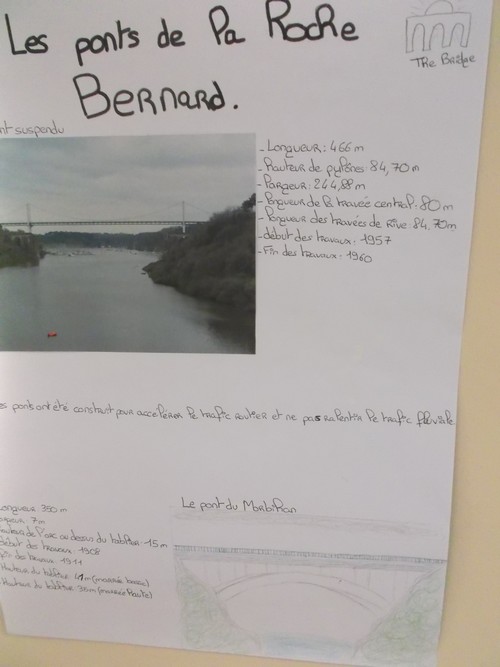 Les ponts de la Roche
Bernard.
The Bridge
nt suspendu
- Longueur : 466 m
- Hauteur de pylônes : 84,70 m
- Largeur : 244,88 m
- Longueur de la travée central : 80 m
- Longueur des travées de Rive : 84,70m
- début des travaux : 1957
- Fin des travaux : 1960
es ponts ont été construit pour accélérer le trafic routier et ne pas ralentir le trafic fluviale
Le pont du Morbihan
ongueur 390 m
7m
hauteur de l'arc au dessus du tablier 15 m
début des travaux 1908
fin des travaux 1911
Hauteur du tablier (marée basse)
Hauteur du tablier 35m (marée haute)